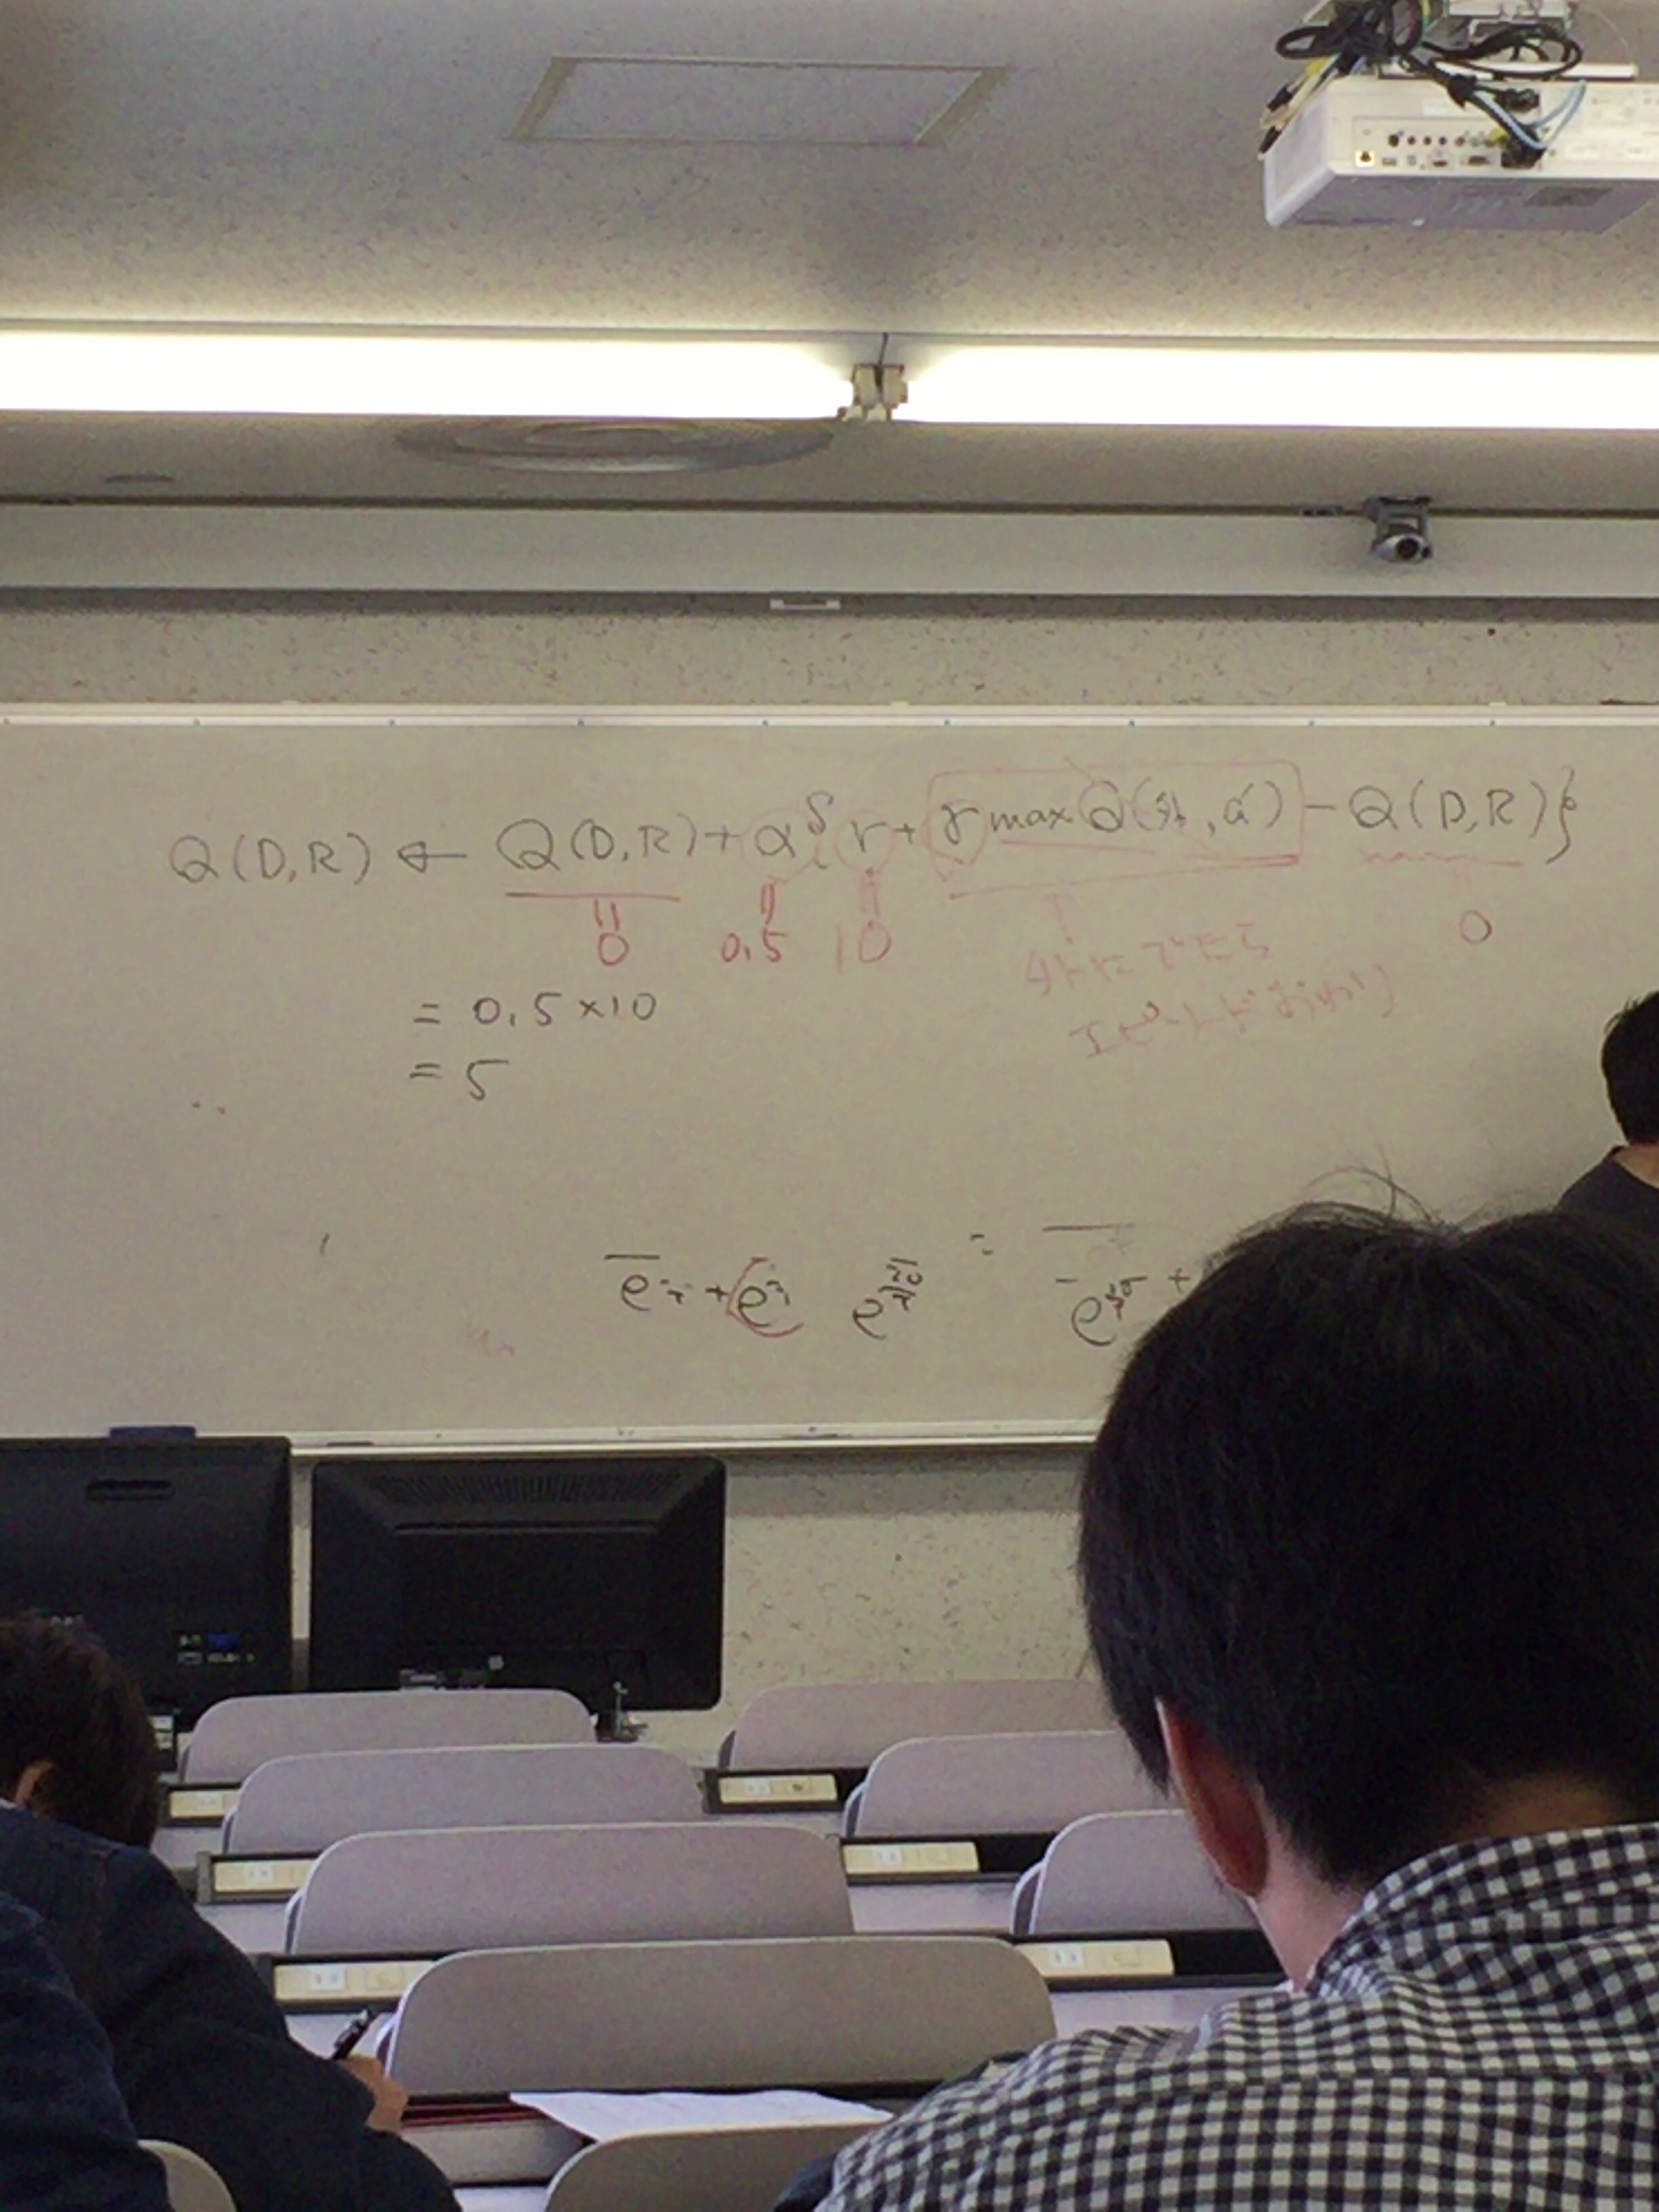 Q(D,R) ← Q(D,R) + α{r + γ max Q(外, a') - Q(D,R)}
0 0.5 10 0
外にでたら
エピソードおわり
= 0.5×10
= 5